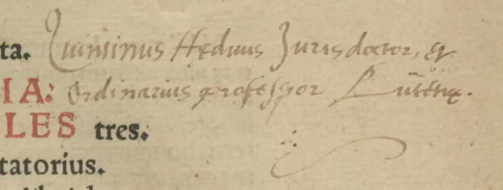 ta. Quintinus Heduus Juris doctor, et
IA: Ordinarius professor Lutetię.
LES tres.
tatorius.